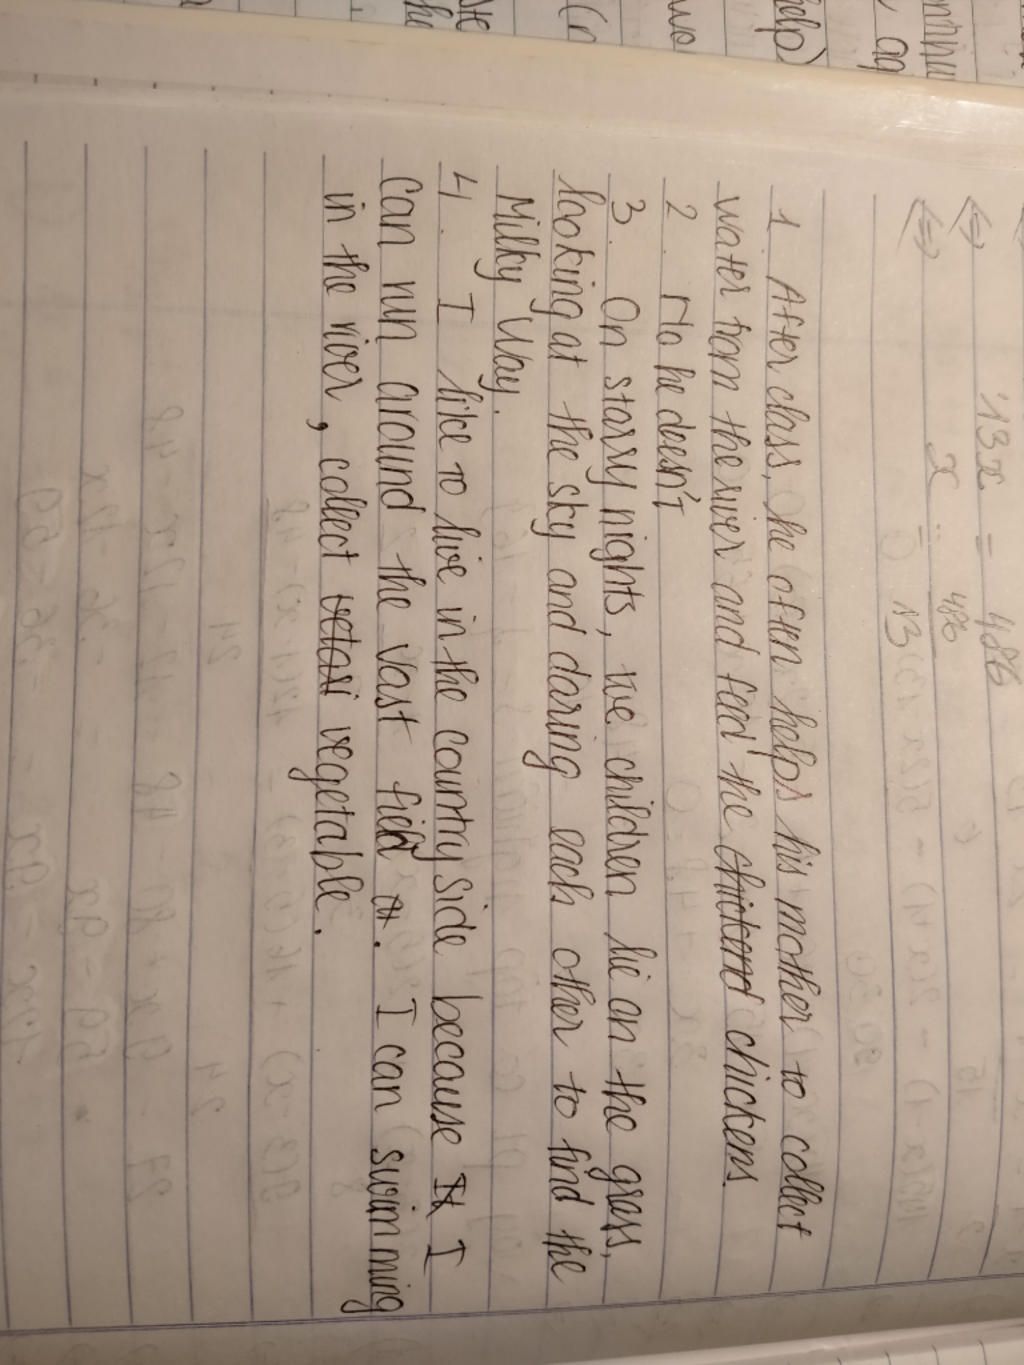 13x = 486
x = 486
13
1. After class, he often helps his mother to collect
water from the river and feed the chickens.
2. No he doesn't
3. On starry nights, we children lie on the grass,
looking at the sky and daring each other to find the
Milky Way.
4. I like to live in the country side because I
can run around the vast field. I can swimming
in the river, collect vegetable.